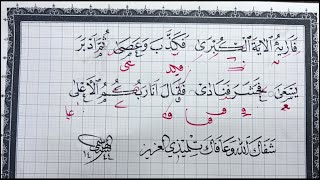 فاريه الاية الكبرى فكذب وعصى ثم ادبر
يسعى فحشر فنادى فقال انا ربكم الاعلى
شفاك الله وعافاك تلميذي العزيز